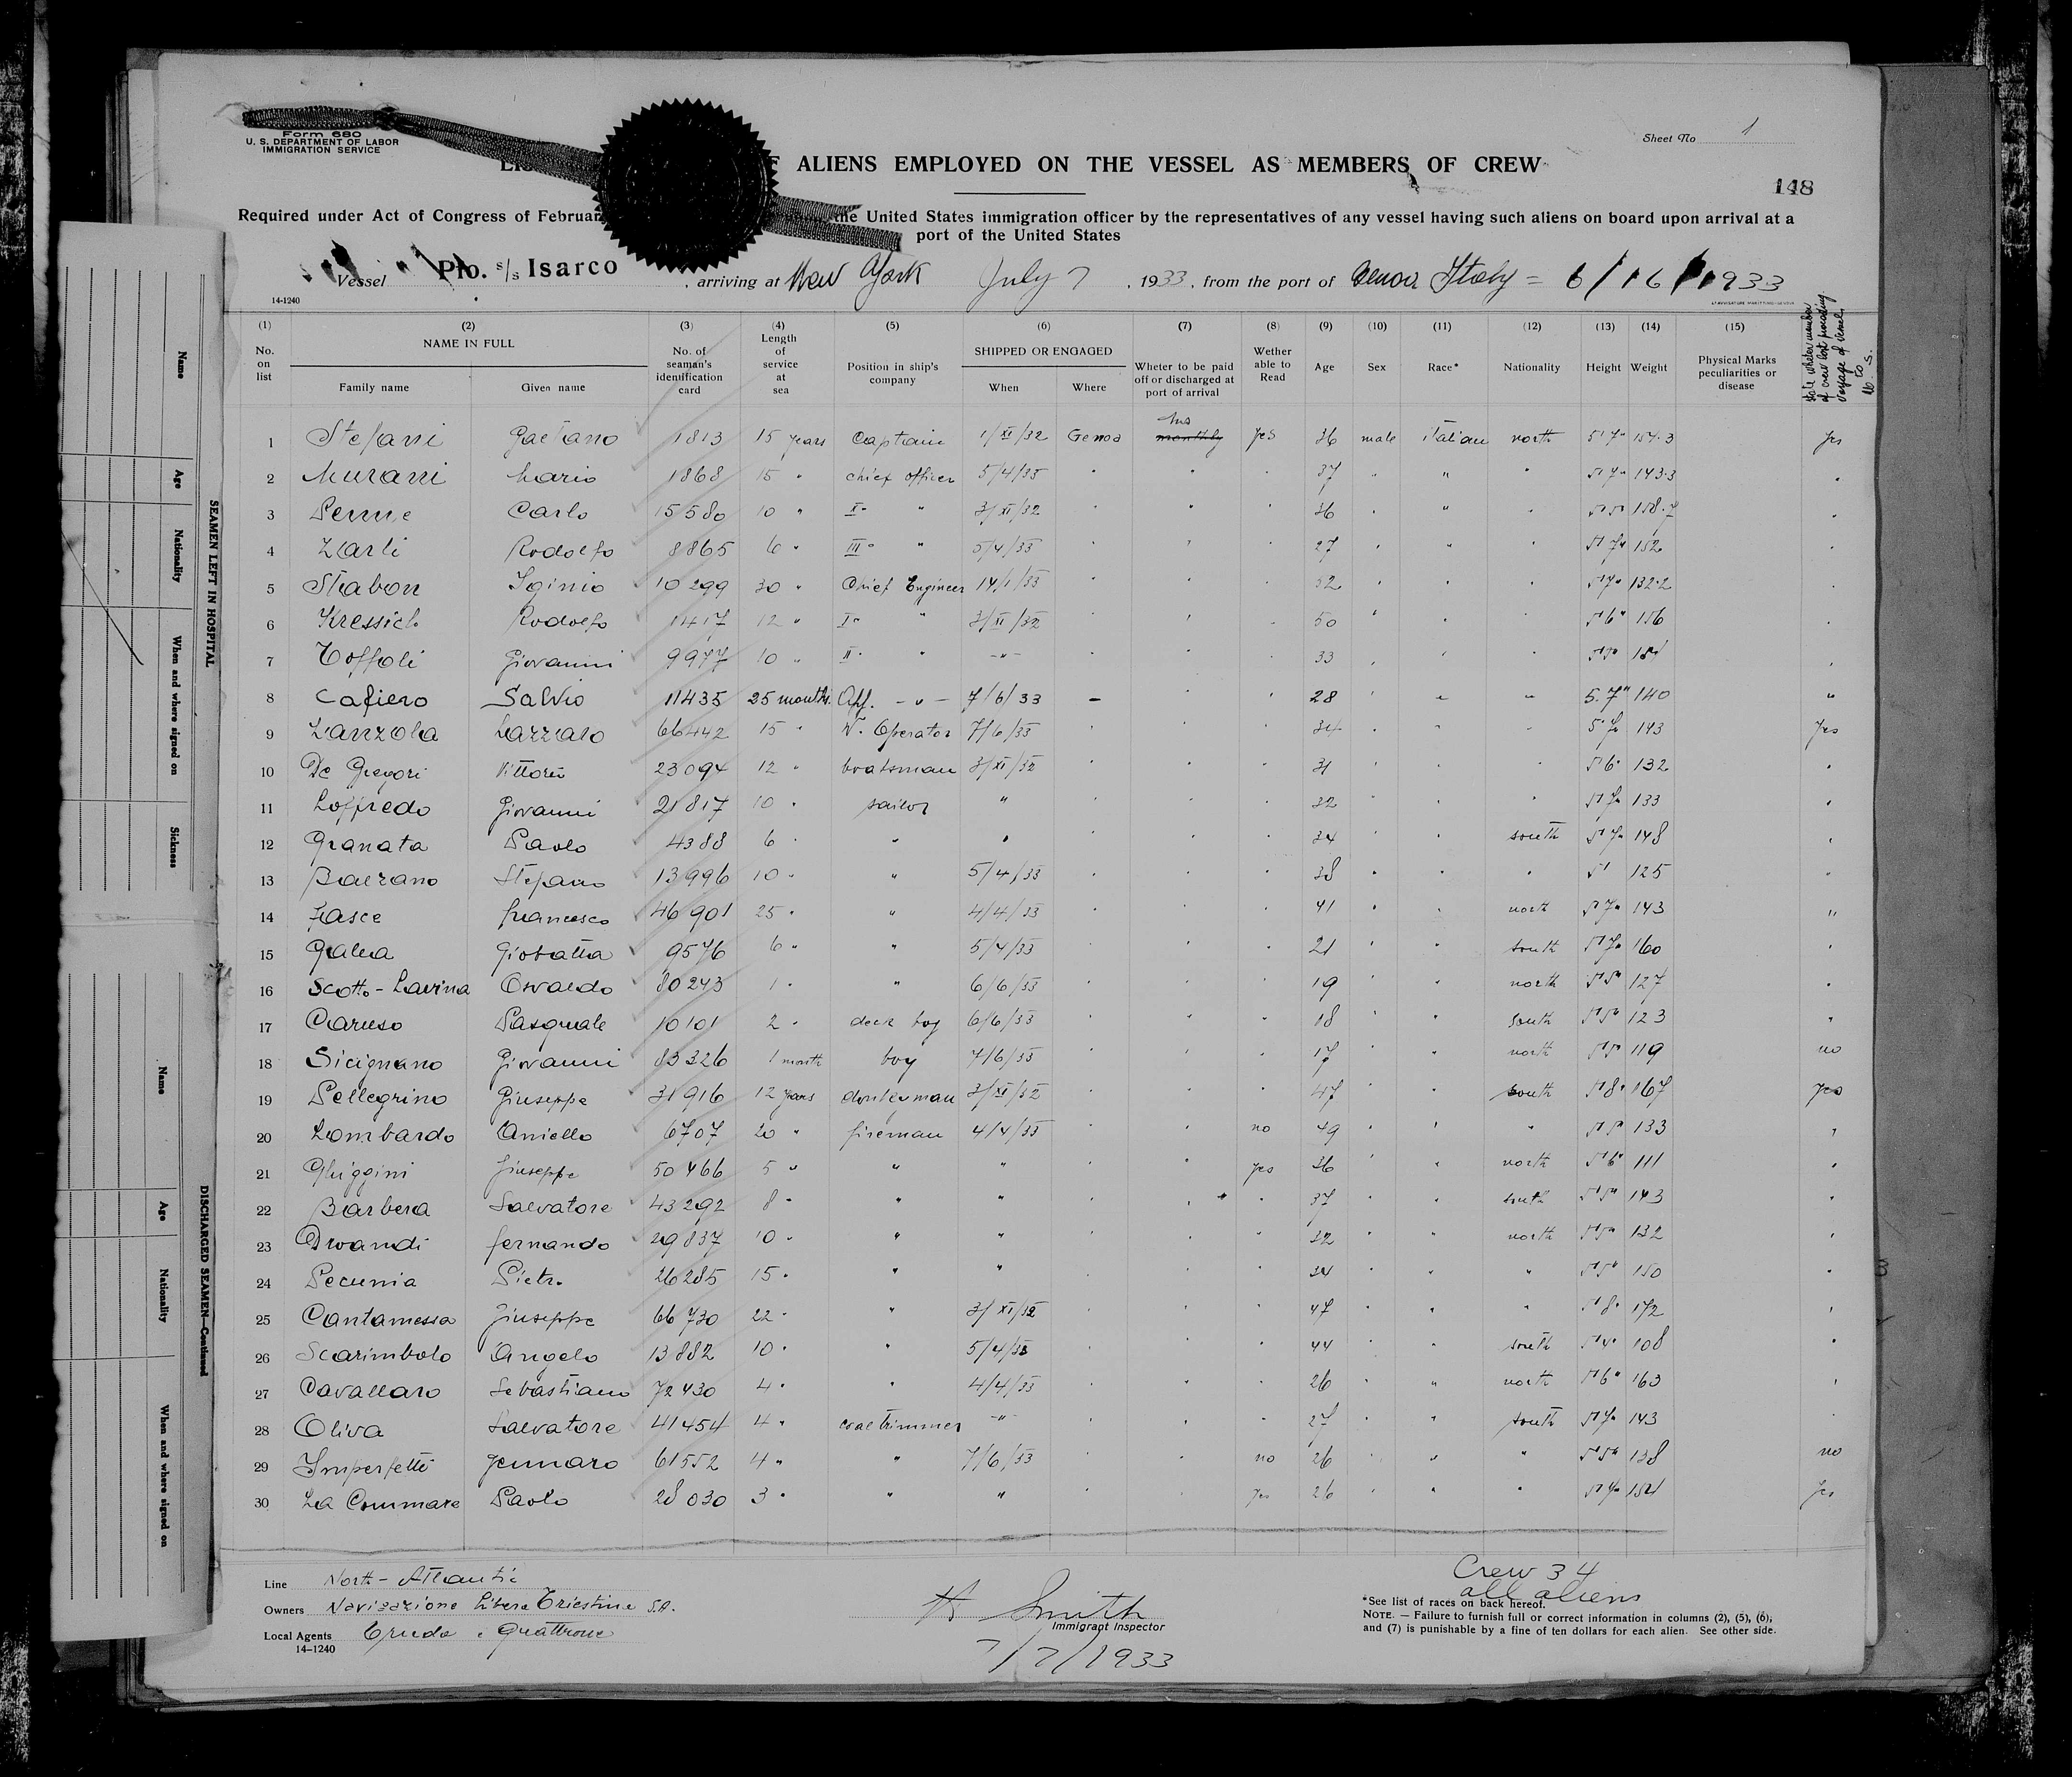 Form 680
U. S. DEPARTMENT OF LABOR
IMMIGRATION SERVICE
Sheet No 1
F ALIENS EMPLOYED ON THE VESSEL AS MEMBERS OF CREW
148
Required under Act of Congress of Februar the United States immigration officer by the representatives of any vessel having such aliens on board upon arrival at a
port of the United States
Vessel Pfo. s/s Isarco , arriving at New York July 7 , 1933, from the port of Genova Italy = 6/16/1933
14-1240
(1) (2) (3) (4) (5) (6) (7) (8) (9) (10) (11) (12) (13) (14) (15)
No. on list
NAME IN FULL
Family name Given name
No. of seaman's identification card
Length of service at sea
Position in ship's company
SHIPPED OR ENGAGED
When Where
Wheter to be paid off or discharged at port of arrival
Wether able to Read
Age Sex Race* Nationality Height Weight
Physical Marks peculiarities or disease
State whether member of crew last preceding voyage of vessel to U. S.
1 Stefani Gaetano 1813 15 years Captain 1/XI/32 Genoa monthly yes 36 male italian north 5'7" 157.3 yes
2 Murani Mario 1868 15 " chief officer 5/4/33 " " " 37 " " " 5'7" 143.3 "
3 Penne Carlo 15580 10 " II° " 3/XI/32 " " " 36 " " " 5'5" 158.7 "
4 Zarli Rodolfo 8865 6 " III° " 5/4/33 " " " 27 " " " 5'7" 152 "
5 Strabon Iginio 10299 30 " Chief Engineer 14/1/33 " " " 52 " " " 5'7" 132.2 "
6 Kressich Rodolfo 1417 12 " I° " 3/XI/32 " " " 50 " " " 5'6" 156 "
7 Toffoli Giovanni 9977 10 " II° " -"- " " " 33 " " " 5'5" "
8 Cafiero Salvio 11435 25 months Off. -"- 7/6/33 - " " 28 " " " 5.7" 140 "
9 Zanzola Lazzaro 66442 15 " W. Operator 7/6/33 " " " 34 " " " 5'7" 143 yes
10 De Gregori Vittorio 23094 12 " boatsman 3/XI/32 " " " 31 " " " 5'6" 132 "
11 Loffredo Giovanni 21817 10 " sailor " " " " 32 " " " 5'7" 133 "
12 Granata Paolo 4388 6 " " " " " " 34 " " south 5'7" 148 "
13 Balzano Stefano 13996 10 " " 5/4/33 " " " 38 " " " 5' 125 "
14 Fasce francesco 46901 25 " " 4/4/33 " " " 41 " " north 5'7" 143 "
15 Galea Giobatta 9576 6 " " 5/4/33 " " " 21 " " south 5'7" 160 "
16 Scotto-Lavina Osvaldo 80243 1 " " 6/6/33 " " " 19 " " north 5'5" 127 "
17 Caruso Pasquale 10101 2 " deck boy 6/6/33 " " " 18 " " south 5'5" 123 "
18 Sicignano Giovanni 83326 1 month boy 7/6/33 " " " 17 " " north 5'5" 119 no
19 Pellegrino Giuseppe 31916 12 years donkeyman 3/XI/32 " " " 47 " " south 5'8" 167 yes
20 Lombardo Aniello 6707 20 " fireman 4/4/33 " " no 49 " " " 5'5" 133 "
21 Ghiggini Giuseppe 50466 5 " " " " " yes 36 " " north 5'6" 111 "
22 Barbera Salvatore 43292 8 " " " " " " 37 " " south 5'5" 143 "
23 fernando 29837 10 " " " " " " 32 " " north 5'5" 132 "
24 Pecunia Pietro 26285 15 " " " " " " 34 " " " 5'5" 150 "
25 Cantamessa Giuseppe 66730 22 " " 3/XI/32 " " " 47 " " " 5'8" 172 "
26 Scarimbolo Angelo 13882 10 " " 5/4/33 " " " 44 " " south 5'4" 108 "
27 Cavallaro Sebastiano 72430 4 " " 4/4/33 " " " 26 " " north 5'6" 163 "
28 Oliva Salvatore 41454 4 " coal trimmer -"- " " " 27 " " south 5'7" 143 "
29 Imperfetti Gennaro 61552 4 " " 7/6/33 " " no 26 " " " 5'5" 138 no
30 La Commare Paolo 28030 3 " " " " " yes 26 " " " 5'7" 154 yes
Line North-Atlantic
Owners Navigazione Libera Triestina S.A.
Local Agents
14-1240
Smith
Immigrant Inspector
7/7/1933
Crew 34
all aliens
*See list of races on back hereof.
NOTE. — Failure to furnish full or correct information in columns (2), (5), (6),
and (7) is punishable by a fine of ten dollars for each alien. See other side.
SEAMEN LEFT IN HOSPITAL
Name Age Nationality When and where signed on Sickness
DISCHARGED SEAMEN—Continued
Name Age Nationality When and where signed on